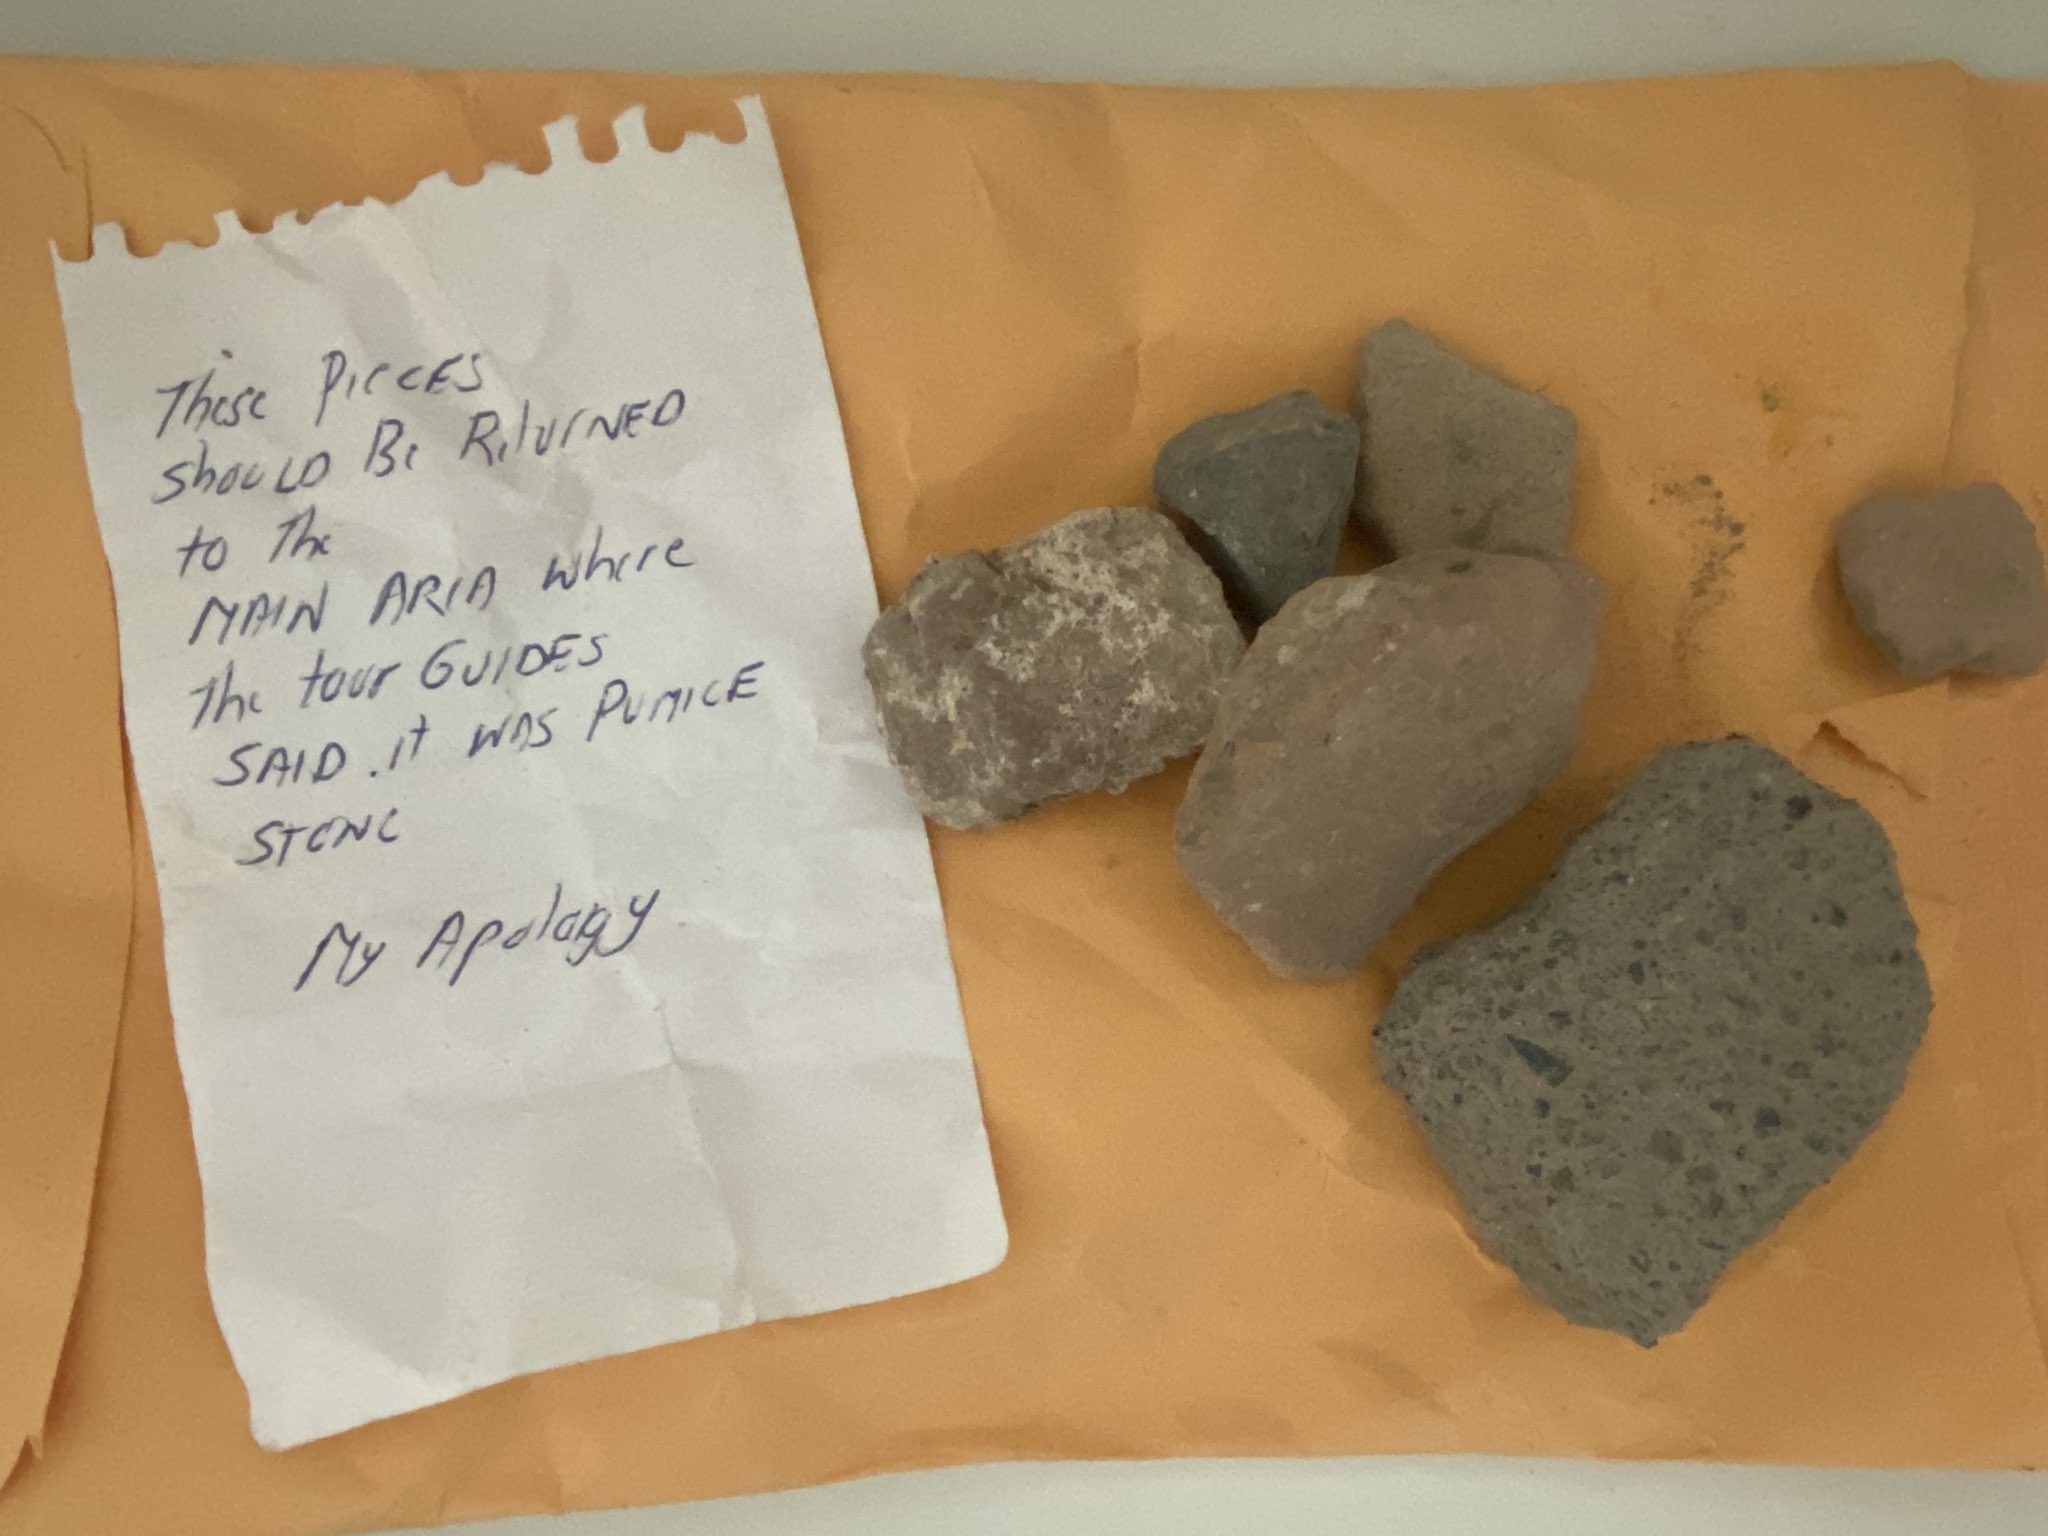 These PIECES
ShOULD BE RETURNED
to The
MAIN AREA where
The tour GUIDES
SAID. it WAS PUMICE
STONE
My Apology